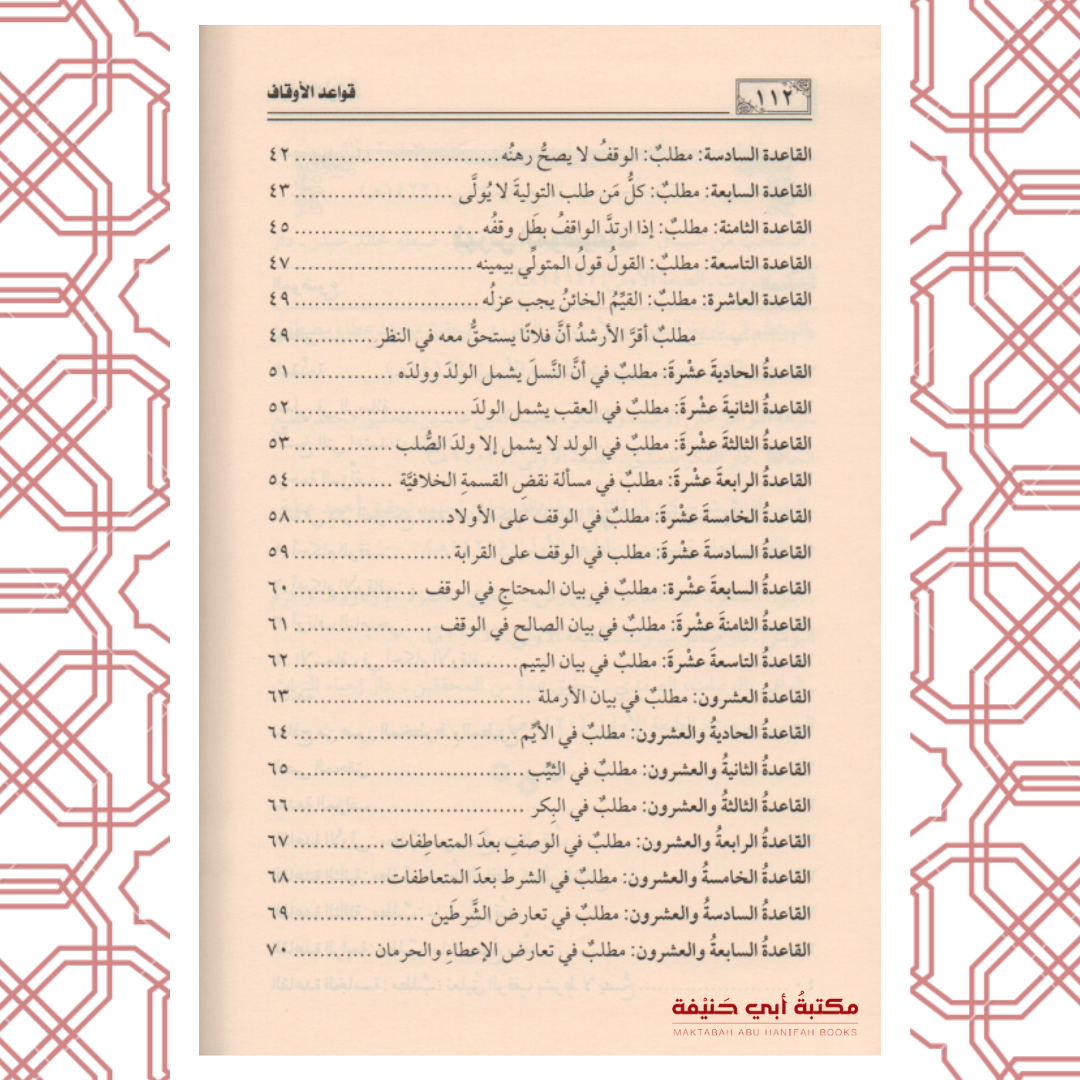 ١١٢ قواعد الأوقاف
القاعدة السادسة: مطلبٌ: الوقفُ لا يصحُّ رهنُه .......... ٤٢
القاعدة السابعة: مطلبٌ: كلُّ مَن طلب التوليةَ لا يُولَّى .......... ٤٣
القاعدة الثامنة: مطلبٌ: إذا ارتدَّ الواقفُ بطَل وقفُه .......... ٤٥
القاعدة التاسعة: مطلبٌ: القولُ قولُ المتولِّي بيمينه .......... ٤٧
القاعدة العاشرة: مطلبٌ: القيِّمُ الخائنُ يجب عزلُه .......... ٤٩
مطلبٌ أقرَّ الأرشدُ أنَّ فلانًا يستحقُّ معه في النظر .......... ٤٩
القاعدةُ الحاديةَ عشْرةَ: مطلبٌ في أنَّ النَّسلَ يشمل الولدَ وولدَه .......... ٥١
القاعدةُ الثانيةَ عشْرةَ: مطلبٌ في العقب يشمل الولدَ .......... ٥٢
القاعدةُ الثالثةَ عشْرةَ: مطلبٌ في الولد لا يشمل إلا ولدَ الصُّلب .......... ٥٣
القاعدةُ الرابعةَ عشْرةَ: مطلبٌ في مسألة نقضِ القسمةِ الخلافيَّة .......... ٥٤
القاعدةُ الخامسةَ عشْرةَ: مطلبٌ في الوقف على الأولاد .......... ٥٨
القاعدةُ السادسةَ عشْرةَ: مطلب في الوقف على القرابة .......... ٥٩
القاعدةُ السابعةَ عشْرةَ: مطلبٌ في بيان المحتاجِ في الوقف .......... ٦٠
القاعدةُ الثامنةَ عشْرةَ: مطلبٌ في بيان الصالح في الوقف .......... ٦١
القاعدةُ التاسعةَ عشْرةَ: مطلبٌ في بيان اليتيم .......... ٦٢
القاعدةُ العشرون: مطلبٌ في بيان الأرملة .......... ٦٣
القاعدةُ الحاديةُ والعشرون: مطلبٌ في الأيِّم .......... ٦٤
القاعدةُ الثانيةُ والعشرون: مطلبٌ في الثيِّب .......... ٦٥
القاعدةُ الثالثةُ والعشرون: مطلبٌ في البِكر .......... ٦٦
القاعدةُ الرابعةُ والعشرون: مطلبٌ في الوصفِ بعدَ المتعاطِفات .......... ٦٧
القاعدةُ الخامسةُ والعشرون: مطلبٌ في الشرط بعدَ المتعاطفات .......... ٦٨
القاعدةُ السادسةُ والعشرون: مطلبٌ في تعارض الشَّرطَين .......... ٦٩
القاعدةُ السابعةُ والعشرون: مطلبٌ في تعارض الإعطاءِ والحرمان .......... ٧٠
مكتبةُ أبي حَنيْفة
MAKTABAH ABU HANIFAH BOOKS